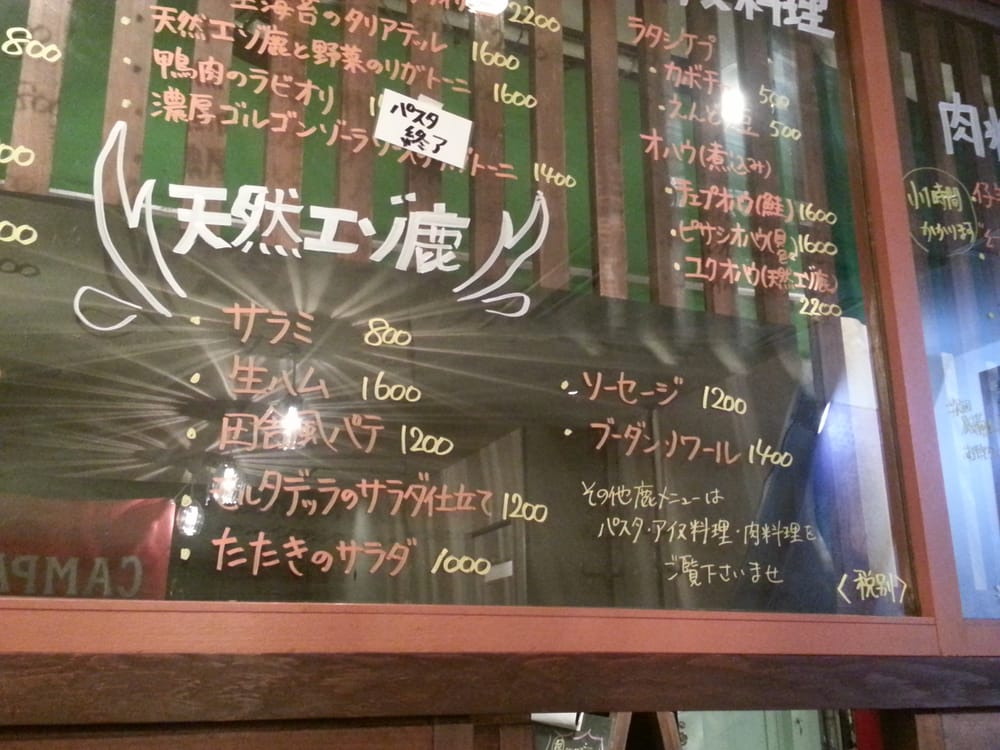 2200
生海苔のタリアテッレ
天然エゾ鹿と野菜のリガトーニ 1600
鴨肉のラビオリ 1600
濃厚ゴルゴンゾーラ
トーニ 1400
パスタ
終了
800
天然エゾ鹿
サラミ 800
生ハム 1600
田舎風パテ 1200
モルタデッラのサラダ仕立て 1200
たたきのサラダ 1000
ソーセージ 1200
ブーダンノワール 1400
その他鹿メニューは
パスタ・アイヌ料理・肉料理を
ご覧下さいませ
〈税別〉
料理
ラタシケプ
・カボチャ 500
・えんど豆 500
オハウ(煮込み)
・チェプオハウ(鮭) 1600
・ピサシオハウ(貝 1600
・ユクオハウ(天然エゾ鹿)
2200
肉料
小1時間
かかります
CAMPA